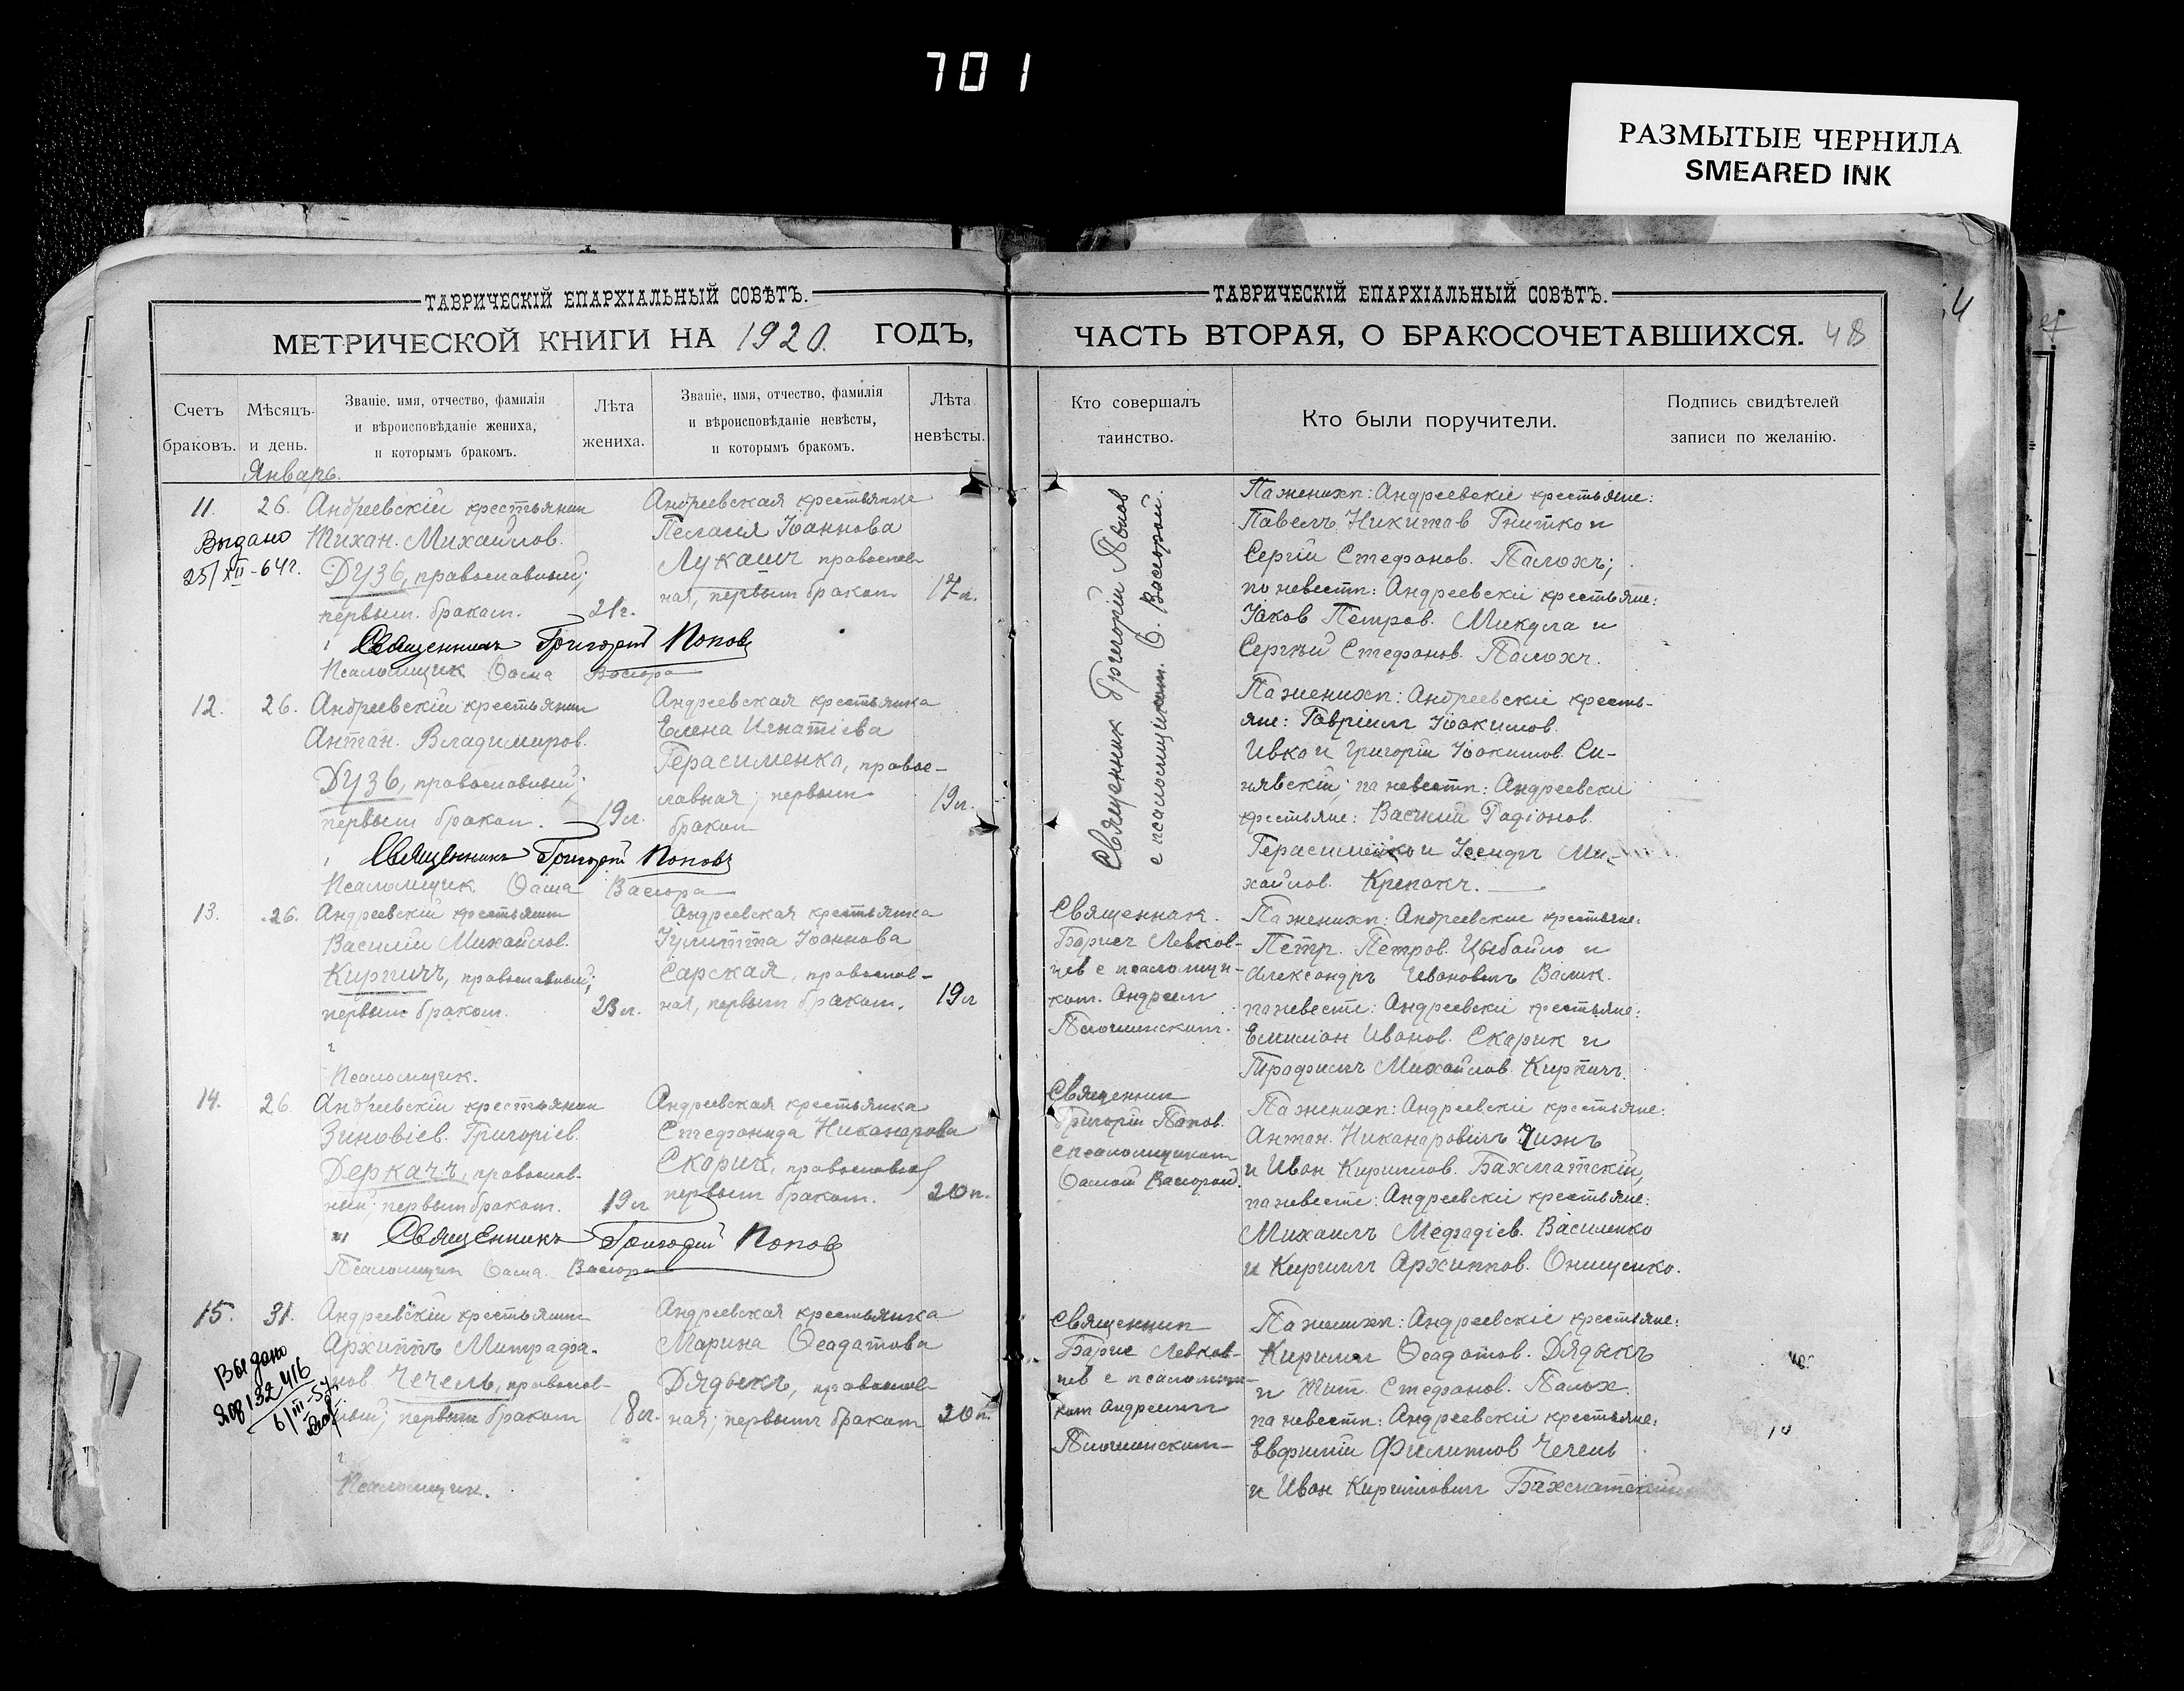 701
РАЗМЫТЫЕ ЧЕРНИЛА
SMEARED INK
ТАВРИЧЕСКІЙ ЕПАРХІАЛЬНЫЙ СОВѢТЪ.
МЕТРИЧЕСКОЙ КНИГИ НА 1920. ГОДЪ,
Счетъ браковъ.
Мѣсяцъ и день.
Званіе, имя, отчество, фамилія
и вѣроисповѣданіе жениха,
и которымъ бракомъ.
Лѣта жениха.
Званіе, имя, отчество, фамилія
и вѣроисповѣданіе невѣсты,
и которымъ бракомъ.
Лѣта невѣсты.
Январь.
11. 26. Андреевскій крестьянин
Тихан. Михайлов.
Дузь, православный;
первым. браком. 21г.
Выдано
25/XII-64г.
Андреевская крестьянка
Пелагія Іоаннова
Лукашъ православ
ная, первым браком 17л.
Священникъ Григорій Попов
Псаломщик Ѳома Васюра
12. 26. Андреевскій крестьянин
Антан. Владимиров.
Дузь, православный;
первым браком. 19л.
Андреевская крестьянка
Елена Игнатіева
Герасименко, правос-
лавная; первым 19л.
браком
Священникъ Григорій Поповъ
Псаломщик Ѳома Васюра
13. 26. Андреевскій крестьянин
Василій Михайлов.
Кирпичъ, православный;
первым браком. 23л.
Андреевская крестьянка
Іулитта Іоаннова
Сарская, православ-
ная, первым браком. 19л
Псаломщик.
14. 26. Андреевскій крестьянин
Зиновіев. Григоріев.
Деркачъ, православ-
ный; первым браком. 19л
Андреевская крестьянка
Стефанида Никанарова
Скорик, православна
первым браком. 20л.
Священникъ Григорій Попов
Псаломщик Ѳома. Васюра
15. 31. Андреевскій крестьянин
Архиппъ Митрафа-
нов. Чечель, православ-
ный; первым браком 18л.
Выдано
132416
6/III-57
Андреевская крестьянка
Марина Ѳеадатова
Дядыкъ, православ
ная; первымъ браком 20л.
Псаломщик.
ТАВРИЧЕСКІЙ ЕПАРХІАЛЬНЫЙ СОВѢТЪ.
ЧАСТЬ ВТОРАЯ, О БРАКОСОЧЕТАВШИХСЯ. 48
Кто совершалъ
таинство.
Кто были поручители.
Подпись свидѣтелей
записи по желанію.
Священник Григорій Попов
с псаломщиком. Ѳ. Васюрой.
Па женихѣ: Андреевскіе крестьяне:
Павелъ Никитов Гнитко и
Сергій Стефанов. Палохъ;
по невестѣ: Андреевскіе крестьяне:
Іаков Петров. Микула и
Сергѣй Стефанов. Палохъ.
Па женихѣ: Андреевскіе кресть-
яне: Гавріилъ Іоакимов.
Ивко и Григорій Іоакимов. Си-
нявскій; па невестѣ: Андреевскіе
крестьяне: Василій Радіонов.
Герасименко и Іосифъ Ми-
хайлов. Крепакъ.
Священник.
Борисъ Левков-
цев с псаломщи-
ком. Андреем
Па женихѣ: Андреевскіе крестьяне:
Петр. Петров. Цыбайло и
Александръ Ивановичъ Валик.
па невестѣ: Андреевскіе крестьяне:
Емилиан Иванов. Скарик и
Трофимъ Михайлов. Кирпичъ.
Священник
Григорій Попов.
с псаломщиком
Ѳомой Васюрой.
Па женихѣ: Андреевскіе крестьяне:
Антан. Никанаровичъ Чижъ
и Иван Кириллов. Бахматскій,
па невестѣ: Андреевскіе крестьяне:
Михаилъ Мефадіев. Василенко
и Кириллъ Архиппов. Онищенко.
Священник
Борис Левков-
цев с псаломщи-
ком Андреемъ
Па женихѣ: Андреевскіе крестьяне:
Кириллъ Ѳеадатов. Дядыкъ
и Тит. Стефанов. Палох.
па невестѣ: Андреевскіе крестьяне:
Евфимій Филиппов Чечель
и Иван Кирилловичъ Бахматскій